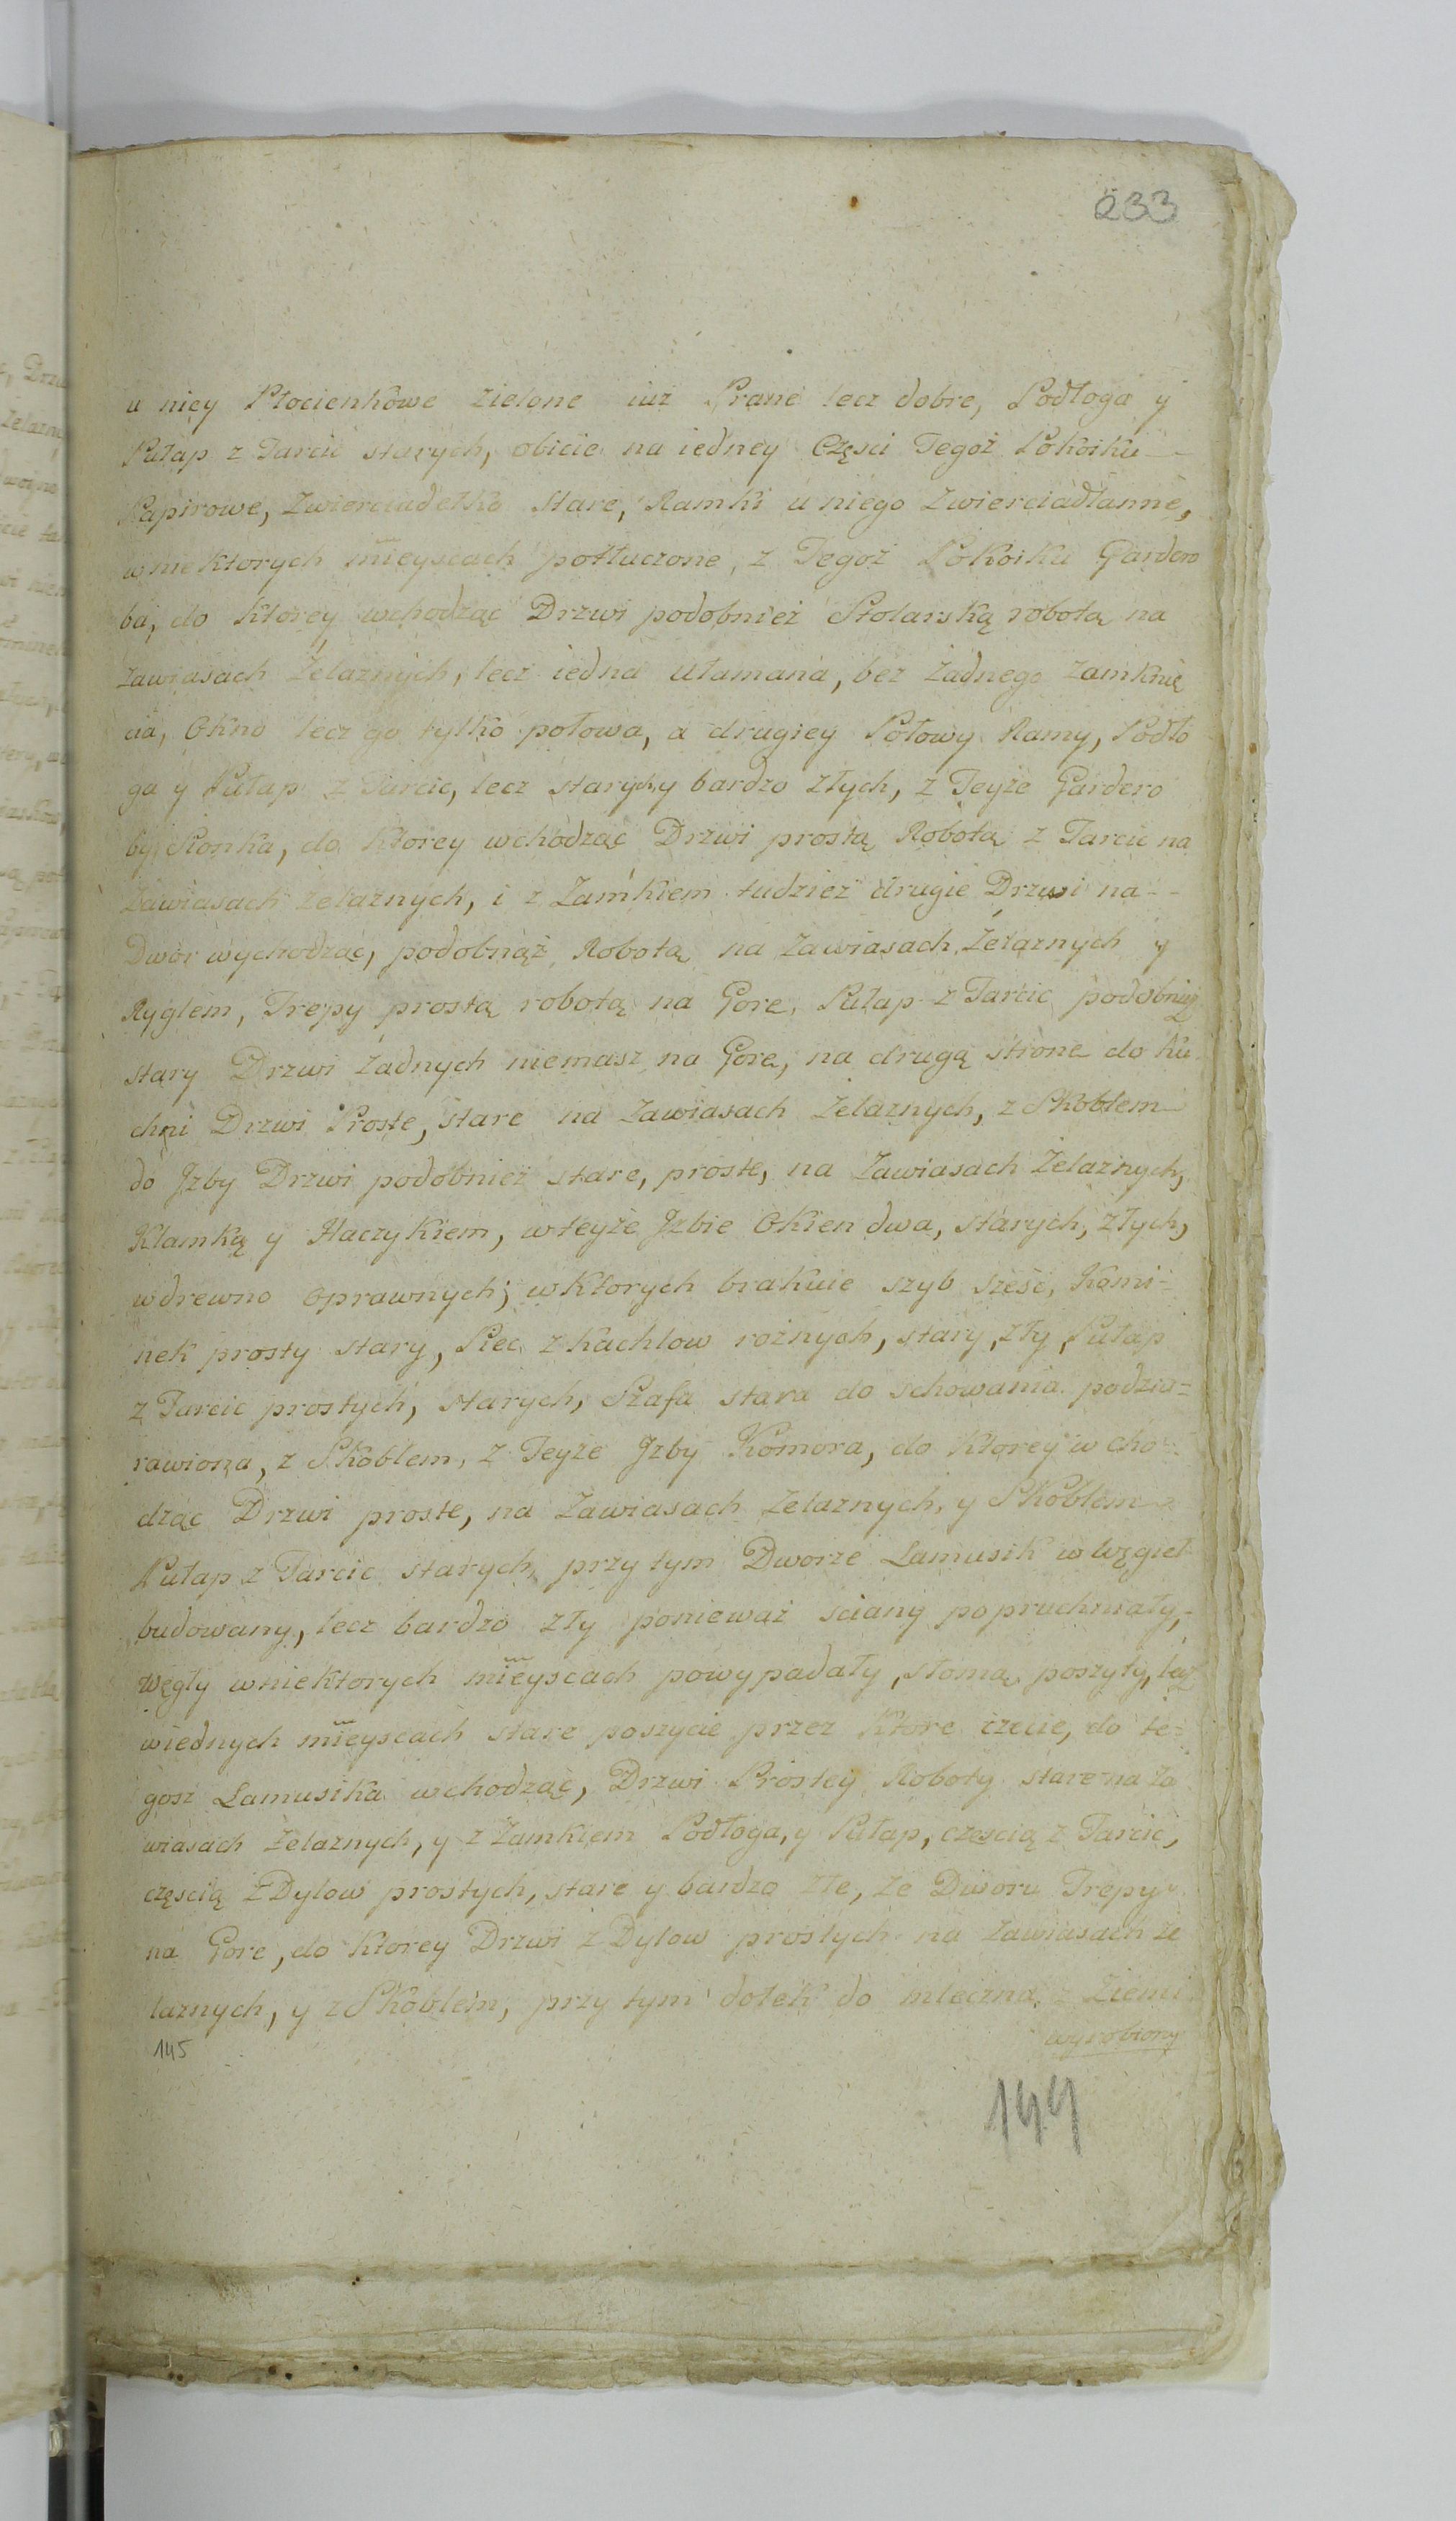 233
u niey Płocienkowe zielone iuż Prane lecz dobre, Podłoga y
Pułap z Tarcic starych, obicie na iedney Częsci Tegoż Pokoiku
Papirowe, Zwierciadełko Stare, Ramki u niego Zwierciadłanne,
w niektorych mieyscach potłuczone, z Tegoż Pokoiku Gardero
ba, do ktorey wchodząc Drzwi podobnież Stolarską robotą na
zawiasach Żelaznych, lecz iedna ułamana, bez żadnego zamknię
cia, Okno lecz go tylko połowa, a drugiey Połowy Ramy, Podło
ga y Pułap z Tarcic, lecz starych y bardzo złych, z Teyże Gardero
by Sionka, do ktorey wchodząc Drzwi prostą Robotą z Tarcic na
Zawiasach żelaznych, i z Zamkiem tudzież drugie Drzwi na--
Dwor wychodząc, podobnąż Robotą na zawiasach, Żelaznych y
Ryglem, Trepy prostą robotą na Gore, Pułap z Tarcic podobnież
stary Drzwi żadnych niemasz na Gore, na drugą strone do Ku
chni Drzwi Proste, stare na Zawiasach Żelaznych, z Skoblem
do Jzby Drzwi podobnież stare, proste, na Zawiasach Żelaznych,
Klamką y Haczykiem, w teyże Jzbie Okien dwa, starych, złych,
w drewno oprawnych; w ktorych brakuie szyb sześć, Komi-
nek prosty stary, Piec z kachlow rożnych, stary, zły, Pułap
z Tarcic prostych, starych, Szafa stara do schowania podziu=
rawiona, z Skoblem, z Teyże Jzby Komora, do ktorey w cho=
dząc Drzwi proste, na Zawiasach Żelaznych, y Skoblem
Pułap z Tarcic starych, przy tym Dworze Lamusik w Węgieł
budowany, lecz bardzo zły ponieważ sciany popruchniały,
Węgły w niektorych mieyscach powypadały, słomą poszyty, lecz
w iednych mieyscach stare poszycie przez ktore ciecie, do te=
gosz Lamusika wchodząc, Drzwi Prostey Roboty stare na Za
wiasach Żelaznych, y z Zamkiem Podłoga, y Pułap, częscią z Tarcic,
częscią z Dylow prostych, stare y bardzo złe, ze Dworu Trepy
na Gore, do ktorey Drzwi z Dylow prostych na zawiasach że
laznych, y z Skoblem, przy tym dołek do mleczna z Ziemi
wyrobiony
145
144